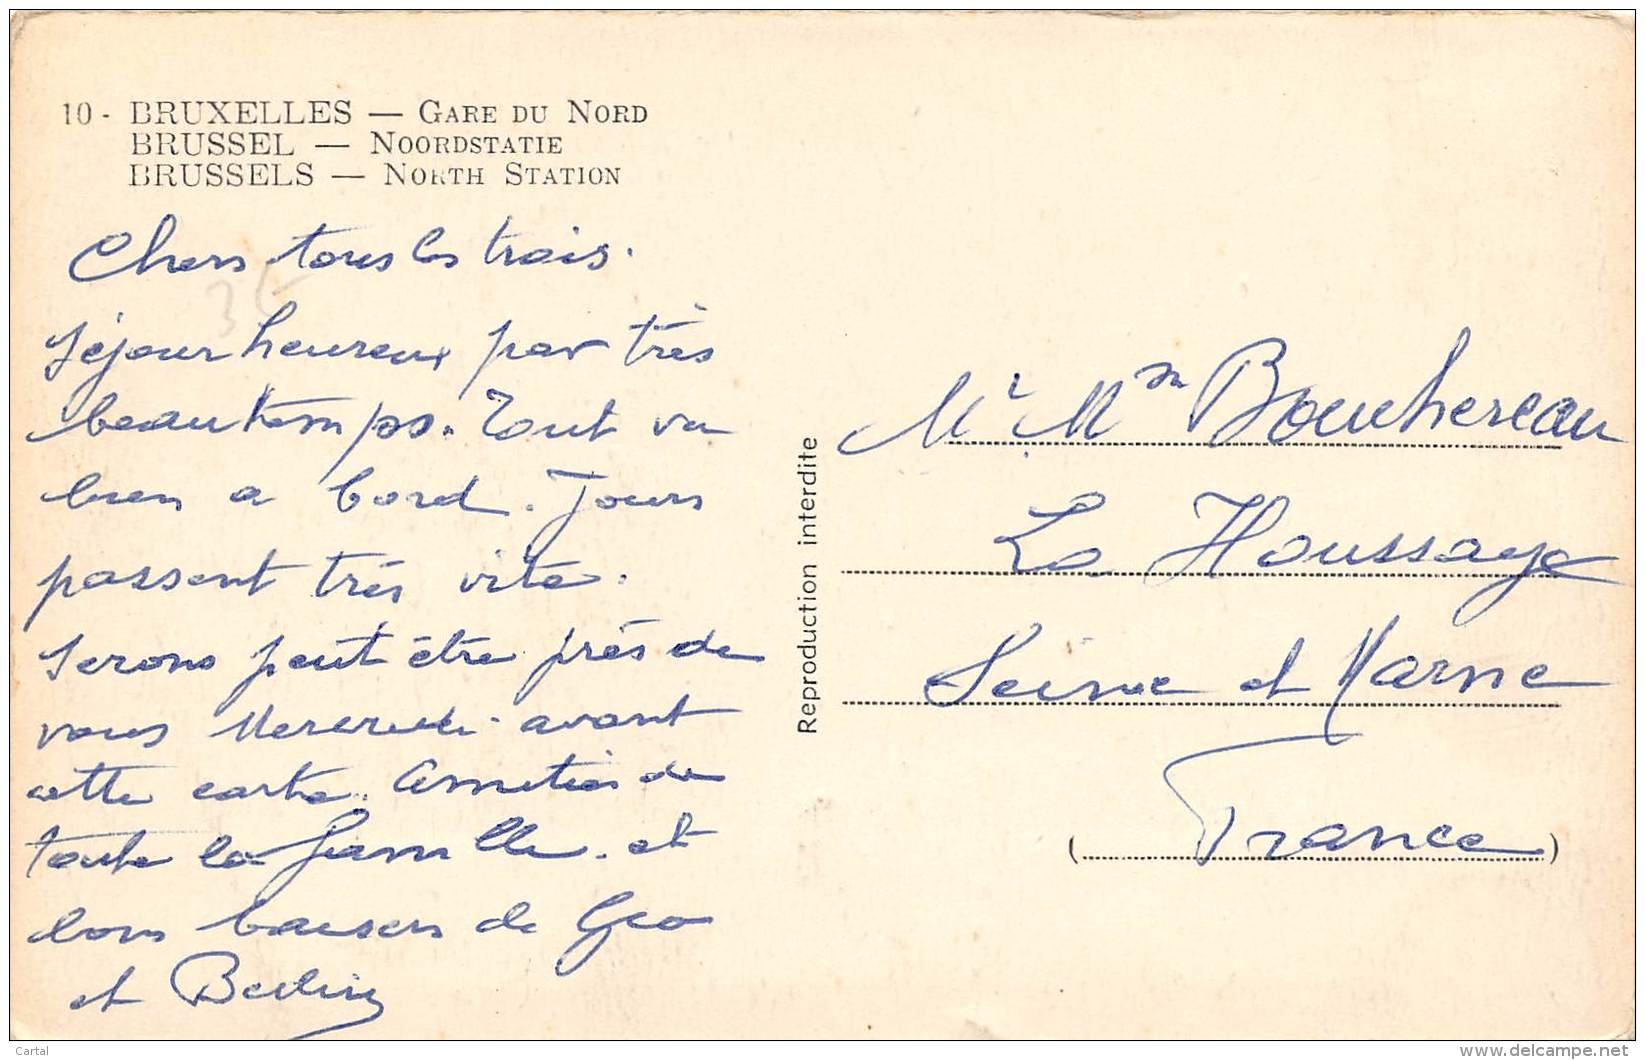 10 - BRUXELLES — GARE DU NORD
BRUSSEL — NOORDSTATIE
BRUSSELS — NORTH STATION
Chers tous les trois.
Séjour heureux par très
beau temps. Tout va
bien a bord. Jours
passent très vite.
Serons peut être près de
vous Mercredi avant
cette carte. Amitiés de
toute la famille et
bons baisers de Geo
et
Reproduction interdite
Mr Mme Bouchereau
La Houssaye
Seine et Marne
(France)
Cartal
www.delcampe.net